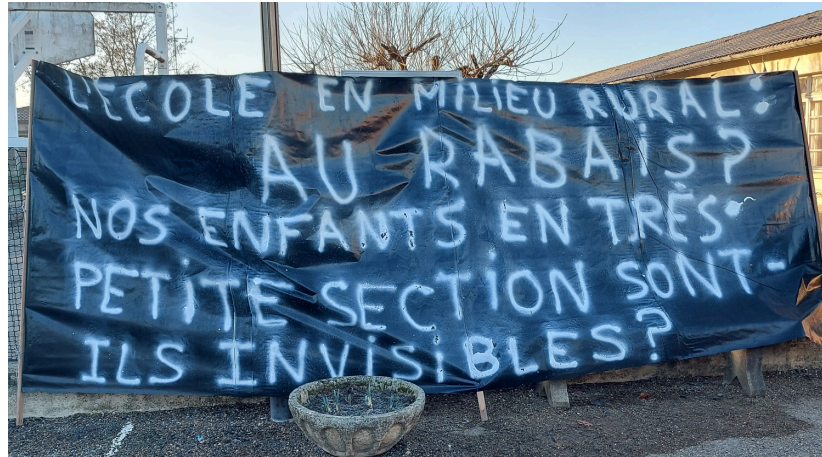 L'ECOLE EN MILIEU RURAL:
AU RABAiS?
NOS ENFANTS EN TRÈS
PETiTE SECTiON SONT-
ILS INViSiBLES?